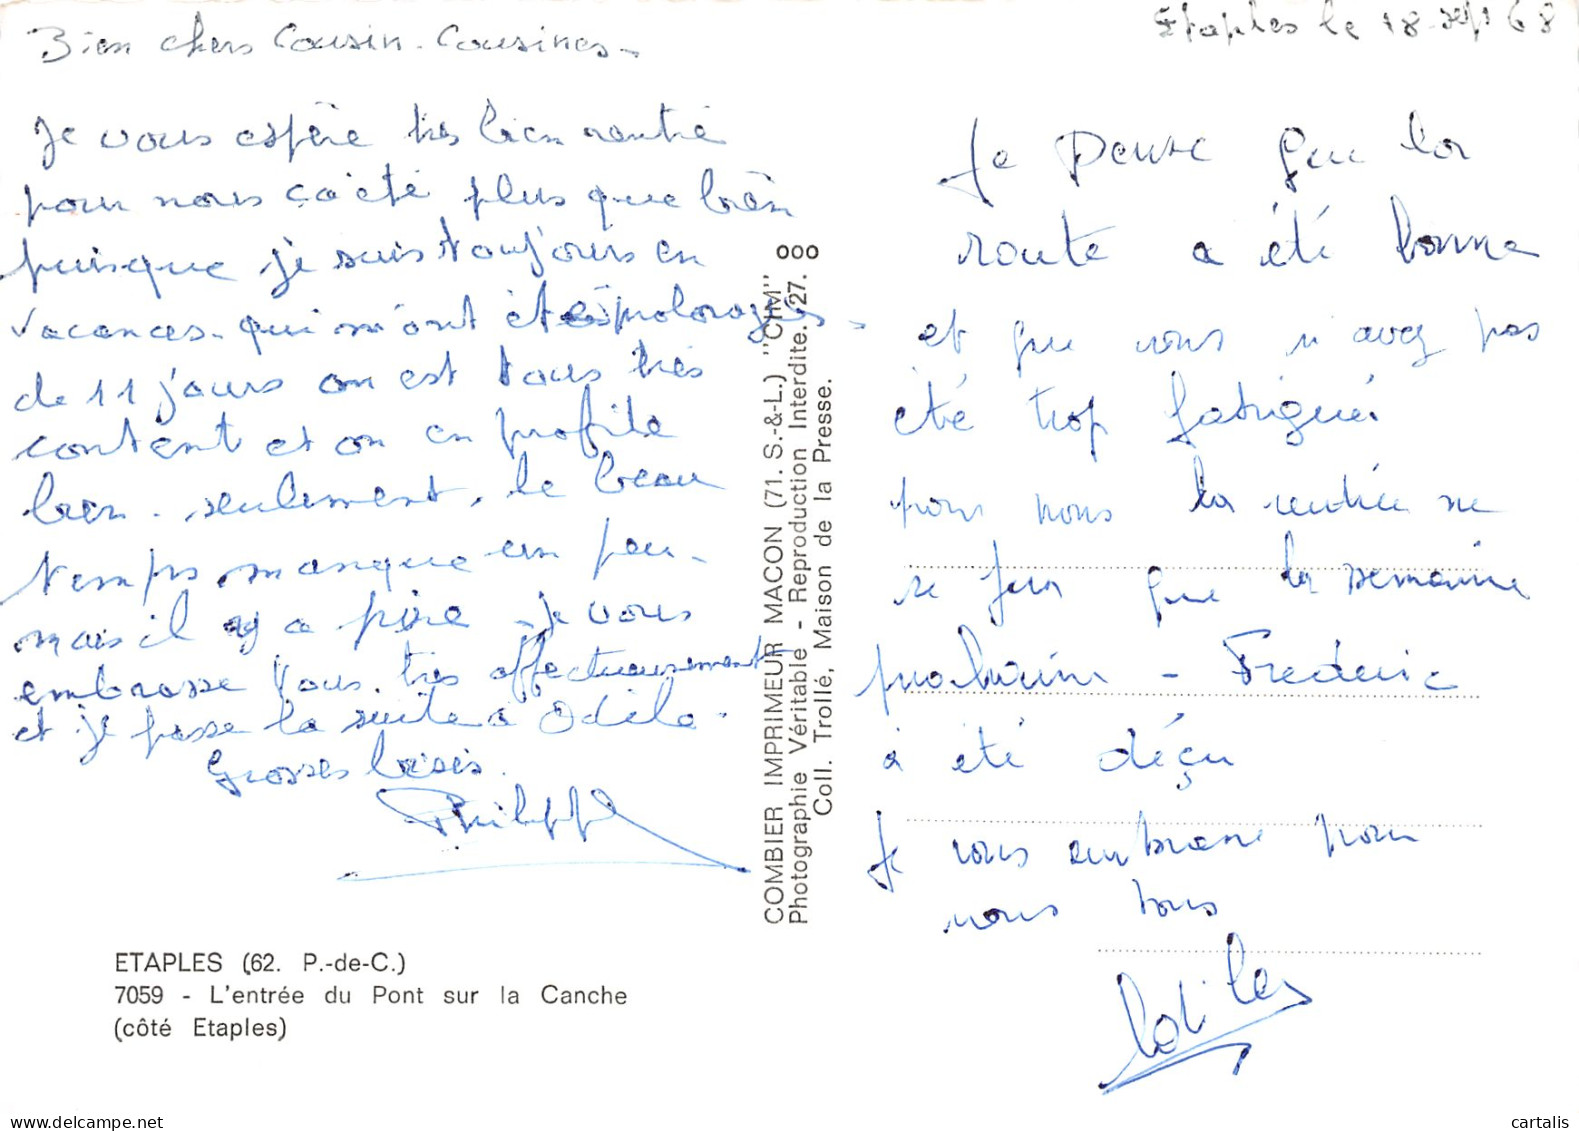 Etaples le 18 sept 68
Bien chers Cousin. Cousines -
Je vous espère très bien rentré
pour nous ça été plus que bien
puisque je suis toujours en
vacances. qui m'ont été prolongées -
de 11 jours on est tous très
content et on en profite
bien. seulement, le beau
temps manque un peu -
mais il y a pire - je vous
embrasse vous très affectueusement
et je passe la suite à Odile.
Grosses bises.
Philippe
ETAPLES (62. P.-de-C.)
7059 - L'entrée du Pont sur la Canche
(côté Etaples)
COMBIER IMPRIMEUR MACON (71. S.-&-L.) "CIM"
Photographie Véritable - Reproduction Interdite. 27.
Coll. Trollé, Maison de la Presse.
Je pense que la
route a été bonne
et que vous n'avez pas
été trop fatigués
pour nous la rentrée ne
se fera que la semaine
prochaine - Frederic
à été déçu
Je vous embrasse pour
nous tous
My cartalis.com
cartalis